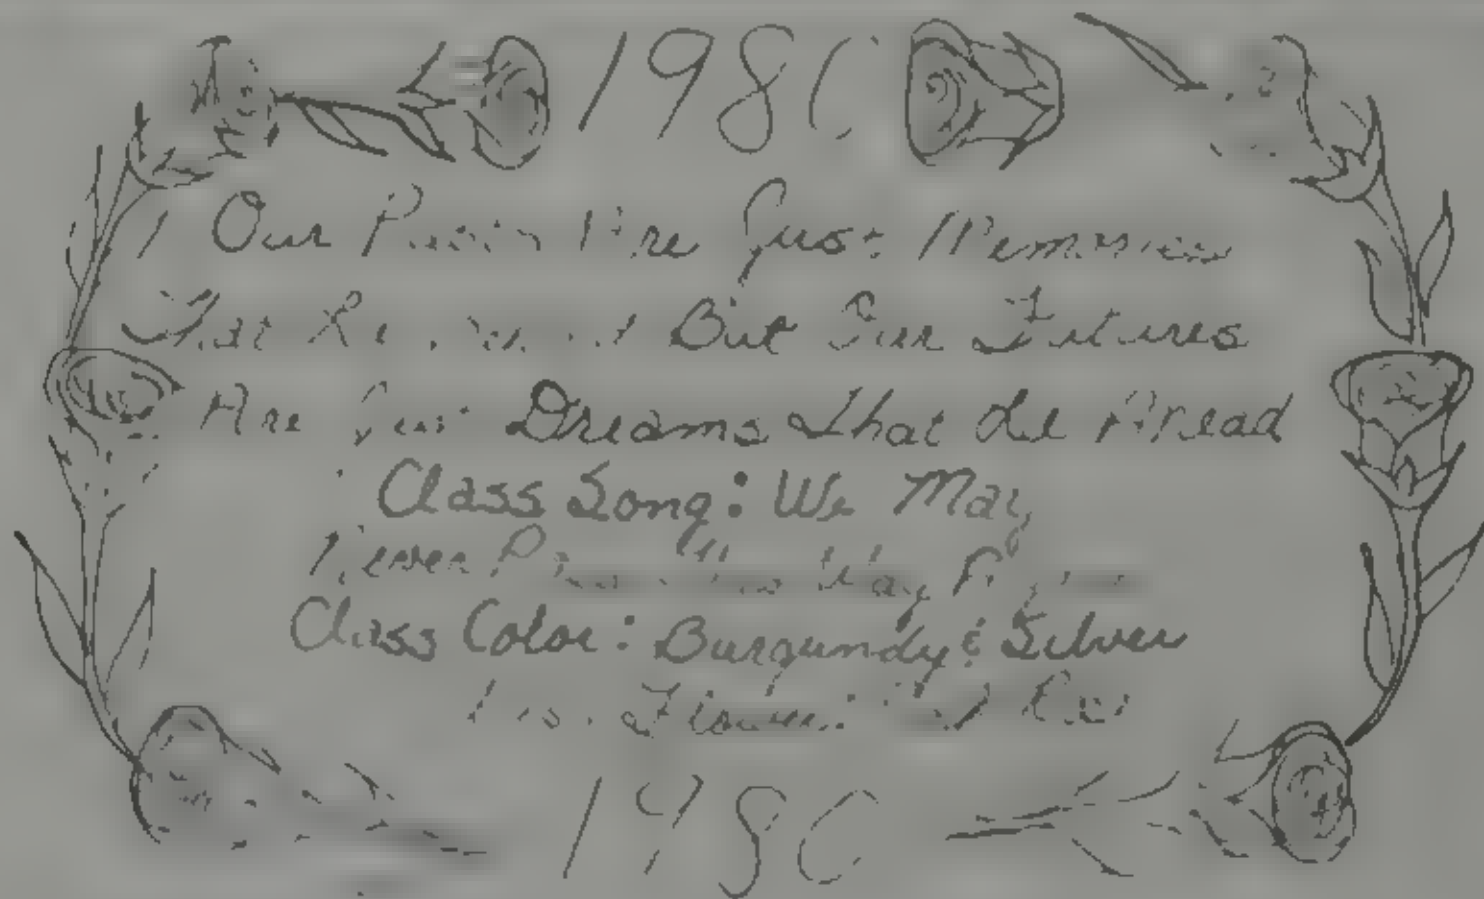 1980
Our Are Just Memories
That But Our Futures
Are Dreams That Lie Ahead
Class Song: We May
Never Pass This Way Again
Class Color: Burgundy & Silver
Flower: Red
1980